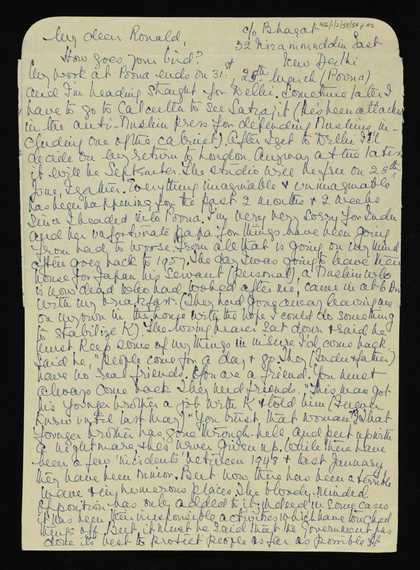 My dear Ronald,
c/o Bhagat
32 Nizammuddin East
New Delhi
How goes your bird?
My work at Poona ends on 31st, 25th March (Poona)
and I'm heading straight for Delhi. Sometime later I
have to go to Calcutta to see Satyajit (he's been attacked
in the anti-Muslim press for defending Muslims in-
cluding one of the cabinet). After I get to Delhi I'll
decide on my return to London. Anyway at the latest
it will be September. The studio will be free on 25th
June, I gather. Everything imaginable & unimaginable
has been happening for the past 2 months & 2 weeks
since I headed into Poona. I'm very very sorry for Indu
and her unfortunate Papa for things have been going
from bad to worse. From all that is going on my mind
often goes back to 1957. The day I was going to leave their
house for Japan his servant (personal), a Muslim who
is now dead & who had looked after me, came in at 6 a.m.
with my breakfast. (They had gone away leaving me
on my own in the house with the hope I could do something
to stabilize K) The loving man sat down & said he
must keep some of my things in insure I'd come back
Said he, "People come for a day & go. They (Indu & father)
have no real friends. You are a friend. You must
always come back. They need friends." This man got
his younger brother a job with K & told him (I never
knew until last May) "You trust that woman". What
younger brother has gone through - hell, and been up with
a nightmare & he's never given up. While there have
been a few 'incidents' between 1948 & last January
they have been minor. But now there has been a terrible
wave & in numerous places. The bloody-minded
opposition has only added to it; indeed in some cases
it has been their irresponsible activities which have touched
things off. But it must be said that the Government has
done its best to protect people as far as possible. If